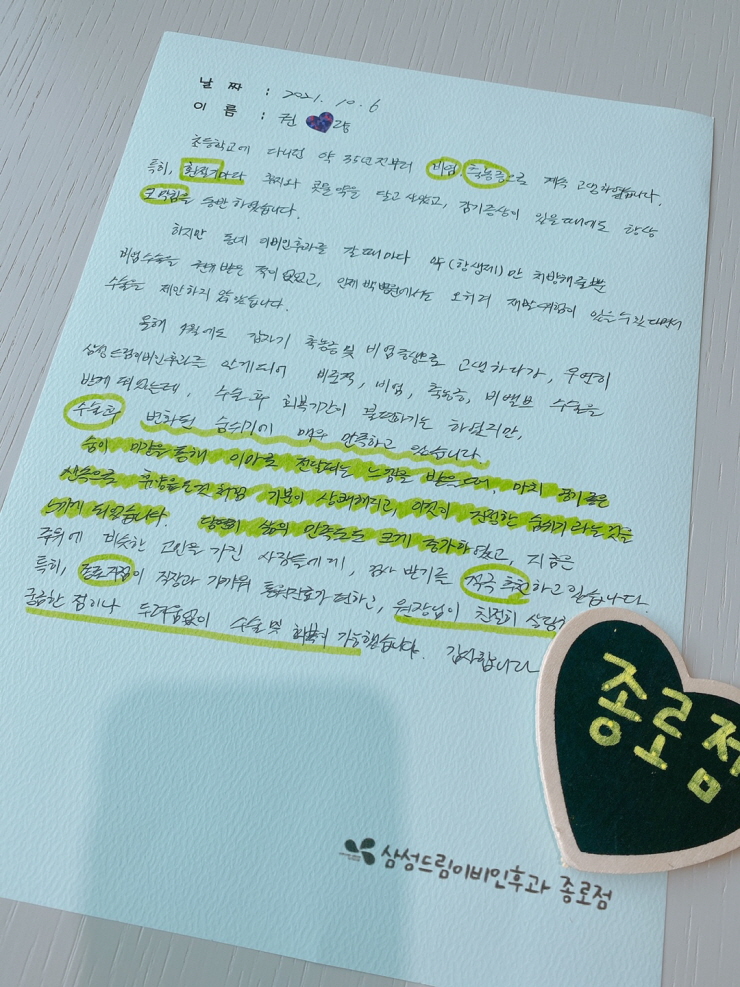 날 짜 : 2021. 10. 6
이 름 : 권 람
초등학교에 다니던 약 35년전부터 비염, 축농증으로 계속 고생하였습니다.
특히, 환절기마다 휴지와 콧물약을 달고 살았고, 감기증상이 있을때에도 항상
코막힘을 동반하였습니다.
하지만 동네 이비인후과를 갈때마다 약(항생제)만 처방해줄뿐
비염수술을 권해 받은 적이 없었고, 병원에서도 오히려 재발위험이 있을수있다면서
수술을 제안하지 않았습니다.
올해 4월에도 갑자기 축농증 및 비염증상으로 고생하다가, 우연히
삼성드림이비인후과를 알게되어 비중격, 비염, 축농증, 비밸브 수술을
받게 되었는데, 수술 후 회복기간이 불편하기는 하였지만,
수술후 변화된 숨쉬기에 매우 만족하고 있습니다.
숨이 미간을 통해 이마로 전달되는 느낌을 받을때, 마치 공기좋은
산속으로 휴양을 온것처럼 기분이 상쾌해지고, 이것이 진정한 숨쉬기라는 것을
느끼게 되었습니다. 당연히 삶의 만족도는 크게 증가하였고, 지금은
주위에 비슷한 고민을 가진 사람들에게, 검사 받기를 적극 추천하고 있습니다.
특히, 종로지점이 직장과 가까워 통원치료가 편하고, 원장님이 친절히
궁금한 점이나 두려움없이 수술 및 회복이 가능했습니다. 감사합니다
종로점
삼성드림이비인후과 종로점